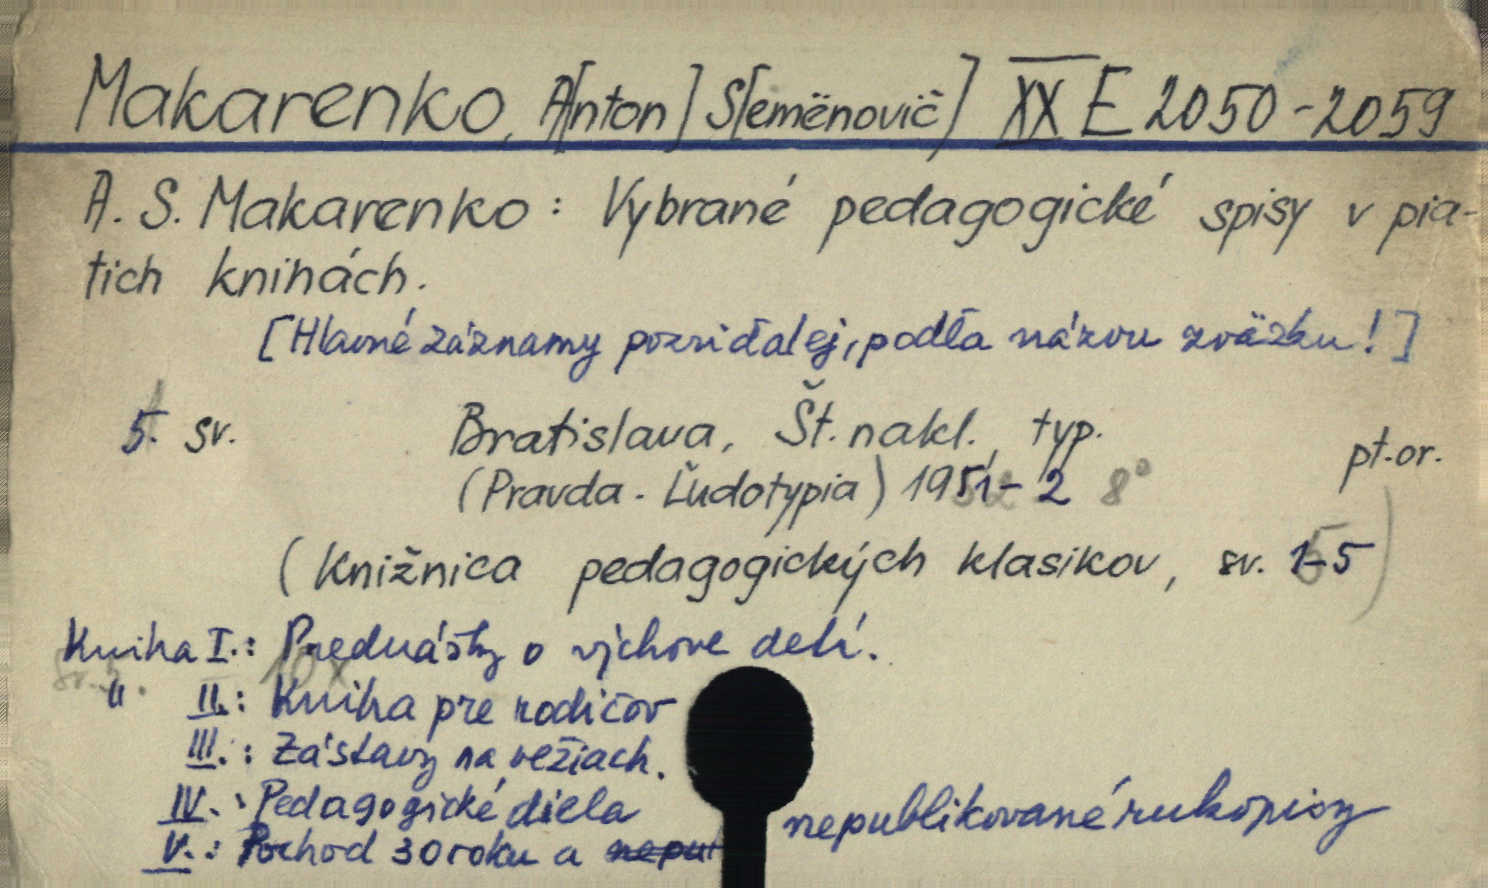 Makarenko, A[nton] S[emënovič] XX E 2050-2059
A. S. Makarenko: Vybrané pedagogické spisy v pia-
tich knihách.
[Hlavné záznamy pozri ďalej, podľa názvu zväzku!]
5. sv. Bratislava, Št. nakl., typ.
(Pravda. Ľudotypia) 1951-2 8° pt.or.
(Knižnica pedagogických klasikov, sv. 1-5)
Kniha I.: Prednášky o výchove detí.
" II.: Kniha pre rodičov
III.: Zástavy na vežiach.
IV.: Pedagogické diela
V.: Pochod 30 roku a nepublikované rukopisy